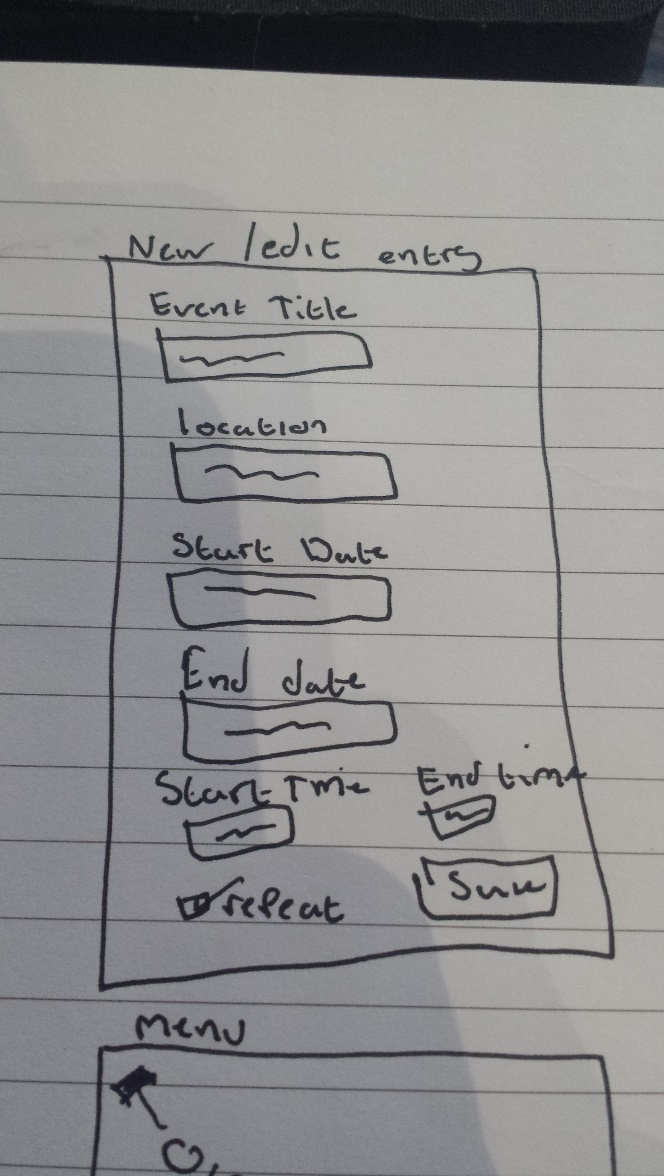 New / edit entry
Event Title
location
Start Date
End date
Start Time End time
repeat Save
Menu